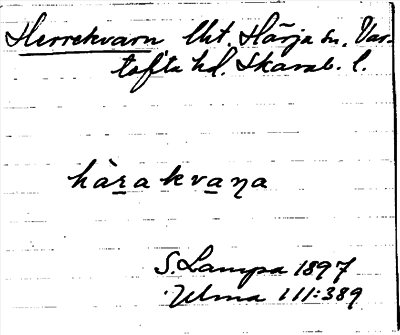 Herrekvarn Utt. Härja sn, Var-
tofta hd. Skarab. l.
hàrakvaṇa
S. Lampa 1897
Ulma 111:389